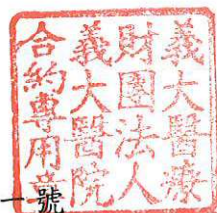 義大醫療
財團法人
義大醫院
合約專用章
一號